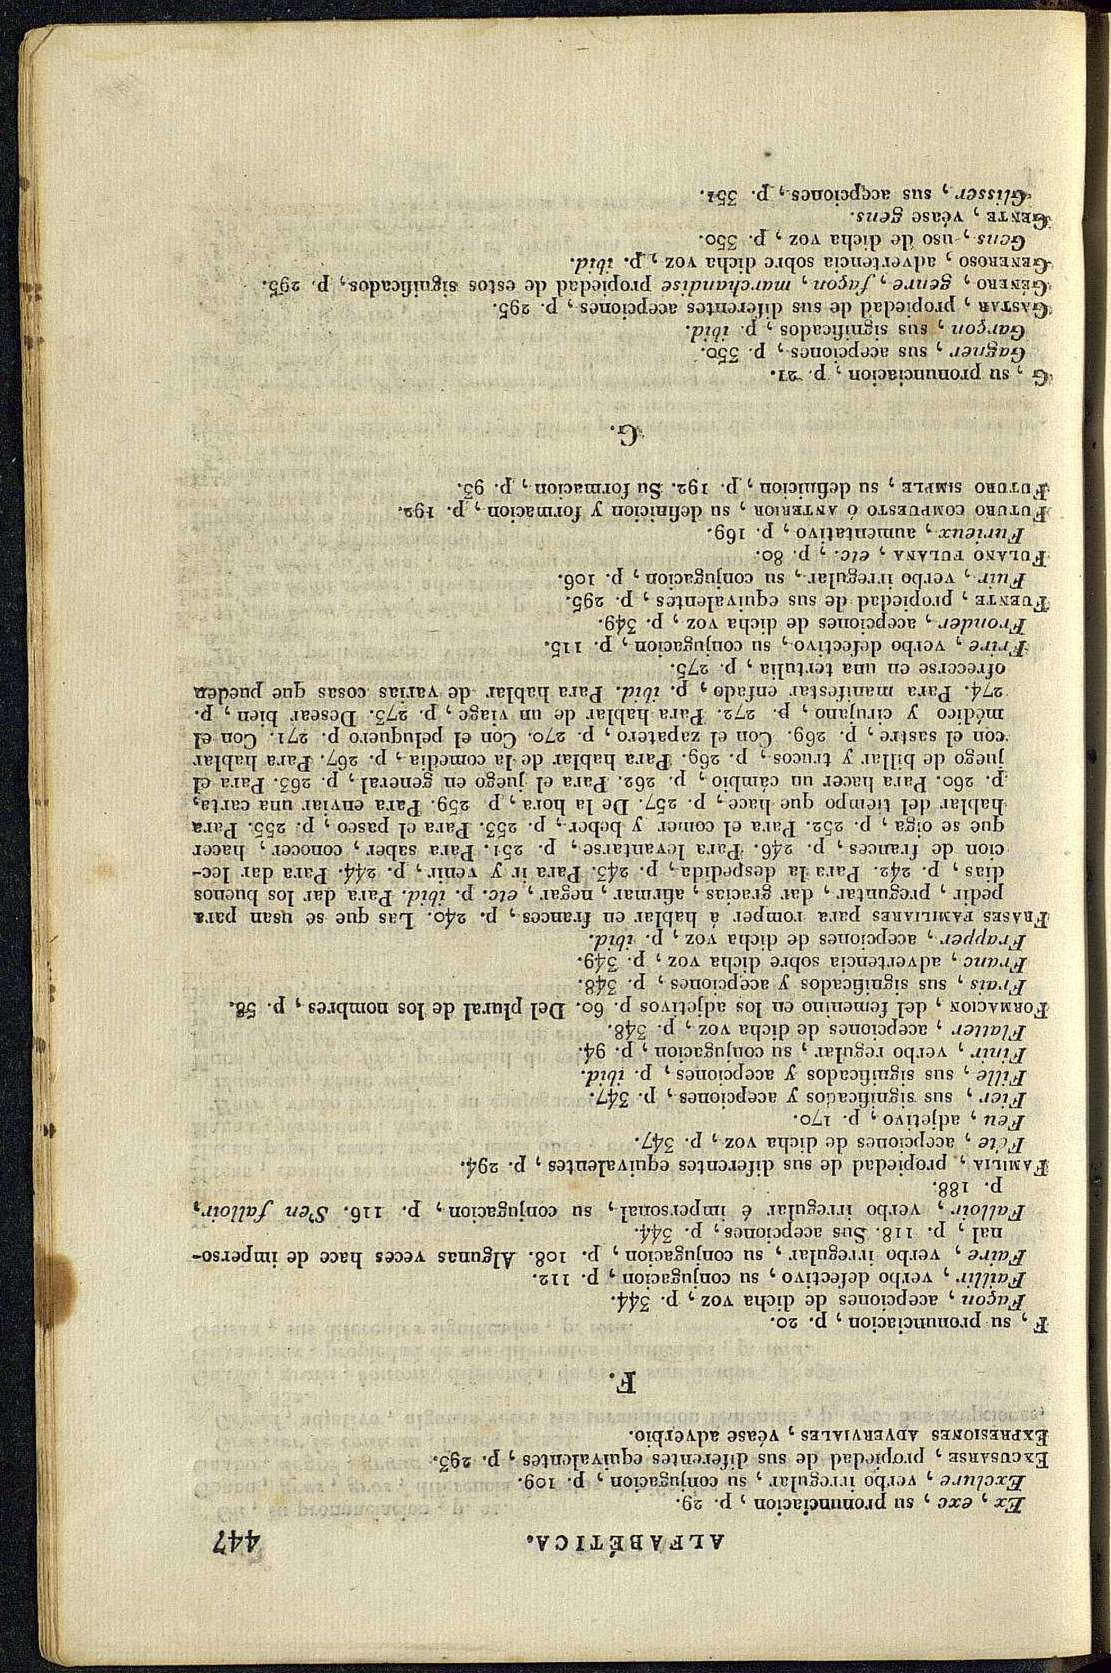 ALFABÉTICA. 447
Ex, exc, su pronunciacion, p. 29.
Exclure, verbo irregular, su conjugacion, p. 109.
EXCUSARSE, propiedad de sus diferentes equivalentes, p. 293.
EXPRESIONES ADVERVIALES, véase adverbio.
F.
F, su pronunciacion, p. 20.
Façon, acepciones de dicha voz, p. 344.
Faillir, verbo defectivo, su conjugacion, p. 112.
Faire, verbo irregular, su conjugacion, p. 108. Algunas veces hace de imperso-
nal, p. 118. Sus acepciones, p. 344.
Falloir, verbo irregular é impersonal, su conjugacion, p. 116. S'en falloir,
p. 188.
FAMILIA, propiedad de sus diferentes equivalentes, p. 294.
Fête, acepciones de dicha voz, p. 347.
Feu, adjetivo, p. 170.
Fier, sus significados y acepciones, p. 347.
Fille, sus significados y acepciones, p. ibid.
Finir, verbo regular, su conjugacion, p. 94.
Flatter, acepciones de dicha voz, p. 348.
FORMACION, del femenino en los adjetivos p. 60. Del plural de los nombres, p. 58.
Frais, sus significados y acepciones, p. 348.
Franc, advertencia sobre dicha voz, p. 349.
Frapper, acepciones de dicha voz, p. ibid.
FRASES FAMILIARES para romper á hablar en frances, p. 240. Las que se usan para
pedir, preguntar, dar gracias, afirmar, negar, etc. p. ibid. Para dar los buenos
dias, p. 242. Para la despedida, p. 243. Para ir y venir, p. 244. Para dar lec-
cion de frances, p. 246. Para levantarse, p. 251. Para saber, conocer, hacer
que se oiga, p. 252. Para el comer y beber, p. 253. Para el paseo, p. 255. Para
hablar del tiempo que hace, p. 257. De la hora, p. 259. Para enviar una carta,
p. 260. Para hacer un cámbio, p. 262. Para el juego en general, p. 263. Para el
juego de billar y trucos, p. 269. Para hablar de la comedia, p. 267. Para hablar
con el sastre, p. 269. Con el zapatero, p. 270. Con el peluquero p. 271. Con el
médico y cirujano, p. 272. Para hablar de un viage, p. 273. Desear bien, p.
274. Para manifestar enfado, p. ibid. Para hablar de varias cosas que pueden
ofrecerse en una tertulia, p. 275.
Frire, verbo defectivo, su conjugacion, p. 115.
Fronder, acepciones de dicha voz, p. 349.
FUENTE, propiedad de sus equivalentes, p. 295.
Fuir, verbo irregular, su conjugacion, p. 106.
FULANO FULANA, etc., p. 80.
Furieux, aumentativo, p. 169.
FUTURO COMPUESTO Ó ANTERIOR, su definicion y formacion, p. 192.
FUTURO SIMPLE, su definicion, p. 192. Su formacion, p. 93.
G.
G, su pronunciacion, p. 21.
Gagner, sus acepciones, p. 350.
Garçon, sus significados, p. ibid.
GASTAR, propiedad de sus diferentes acepciones, p. 295.
GÉNERO, genre, façon, marchandise propiedad de estos significados, p. 295.
GENEROSO, advertencia sobre dicha voz, p. ibid.
Gens, uso de dicha voz, p. 350.
GENTE, véase gens.
Glisser, sus acepciones, p. 351.